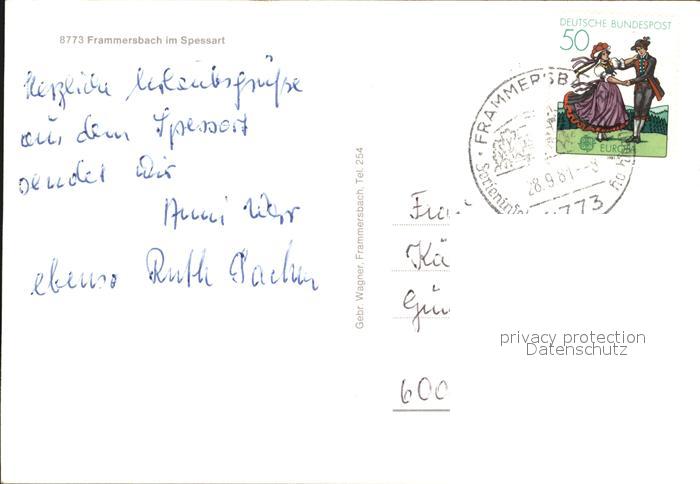 8773 Frammersbach im Spessart
Herzliche Urlaubsgrüße
aus dem Spessart
sendet Dir
Anni
ebenso Ruth
Gebr. Wagner, Frammersbach, Tel. 254
DEUTSCHE BUNDESPOST
50
EUROPA
FRAMMERSB
28.9.81--8
8773
Frau
Kü
Gün
600
privacy protection
Datenschutz